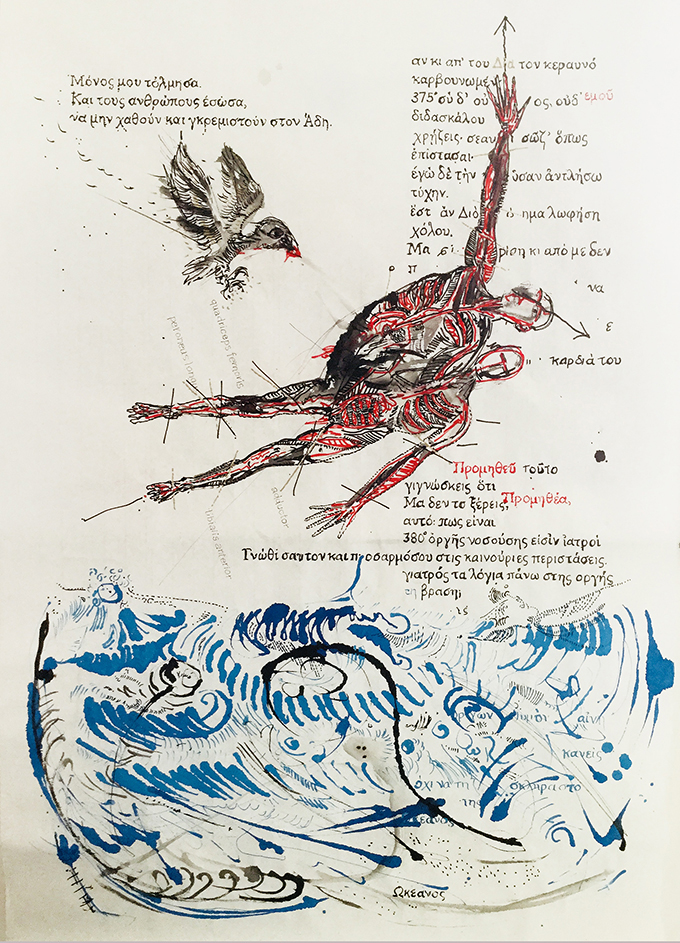 Μένος μου τόλμησα.
Και τους ανθρώπους έσωσα,
να μην χαθούν και γκρεμιστούν στον Άδη.
αν κι απ' του Δία τον κεραυνό
καρβουνωμέν
375 σὺ δ' οὐ ος, οὐδ' ἐμοῦ
διδασκάλου
χρῄζεις· σεαυ σῷζ' ὅπως
ἐπίστασαι·
ἐγὼ δὲ τὴν οῦσαν ἀντλήσω
τύχην.
ἔστ' ἂν Διὸ όνημα λωφήση
χόλου.
Μα ρίση κι από με δεν
π
να
ε
καρδιά του
quadriceps femoris
peroneus lon
adductor
tibialis anterior
Προμηθεῦ τοῦτο
γιγνώσκεις ὅτι
Μα δεν το ξέρεις, Προμηθέα,
αυτό: πως είναι
380 ὀργῆς νοσούσης εἰσὶν ἰατροὶ
Γνώθι σαυτον και προσαρμόσου στις καινούριες περιστάσεις.
γιατρός τα λόγια πάνω στης οργής
τη βράση;
ις
κανείς
όχι να τη
της
Ωκεανος